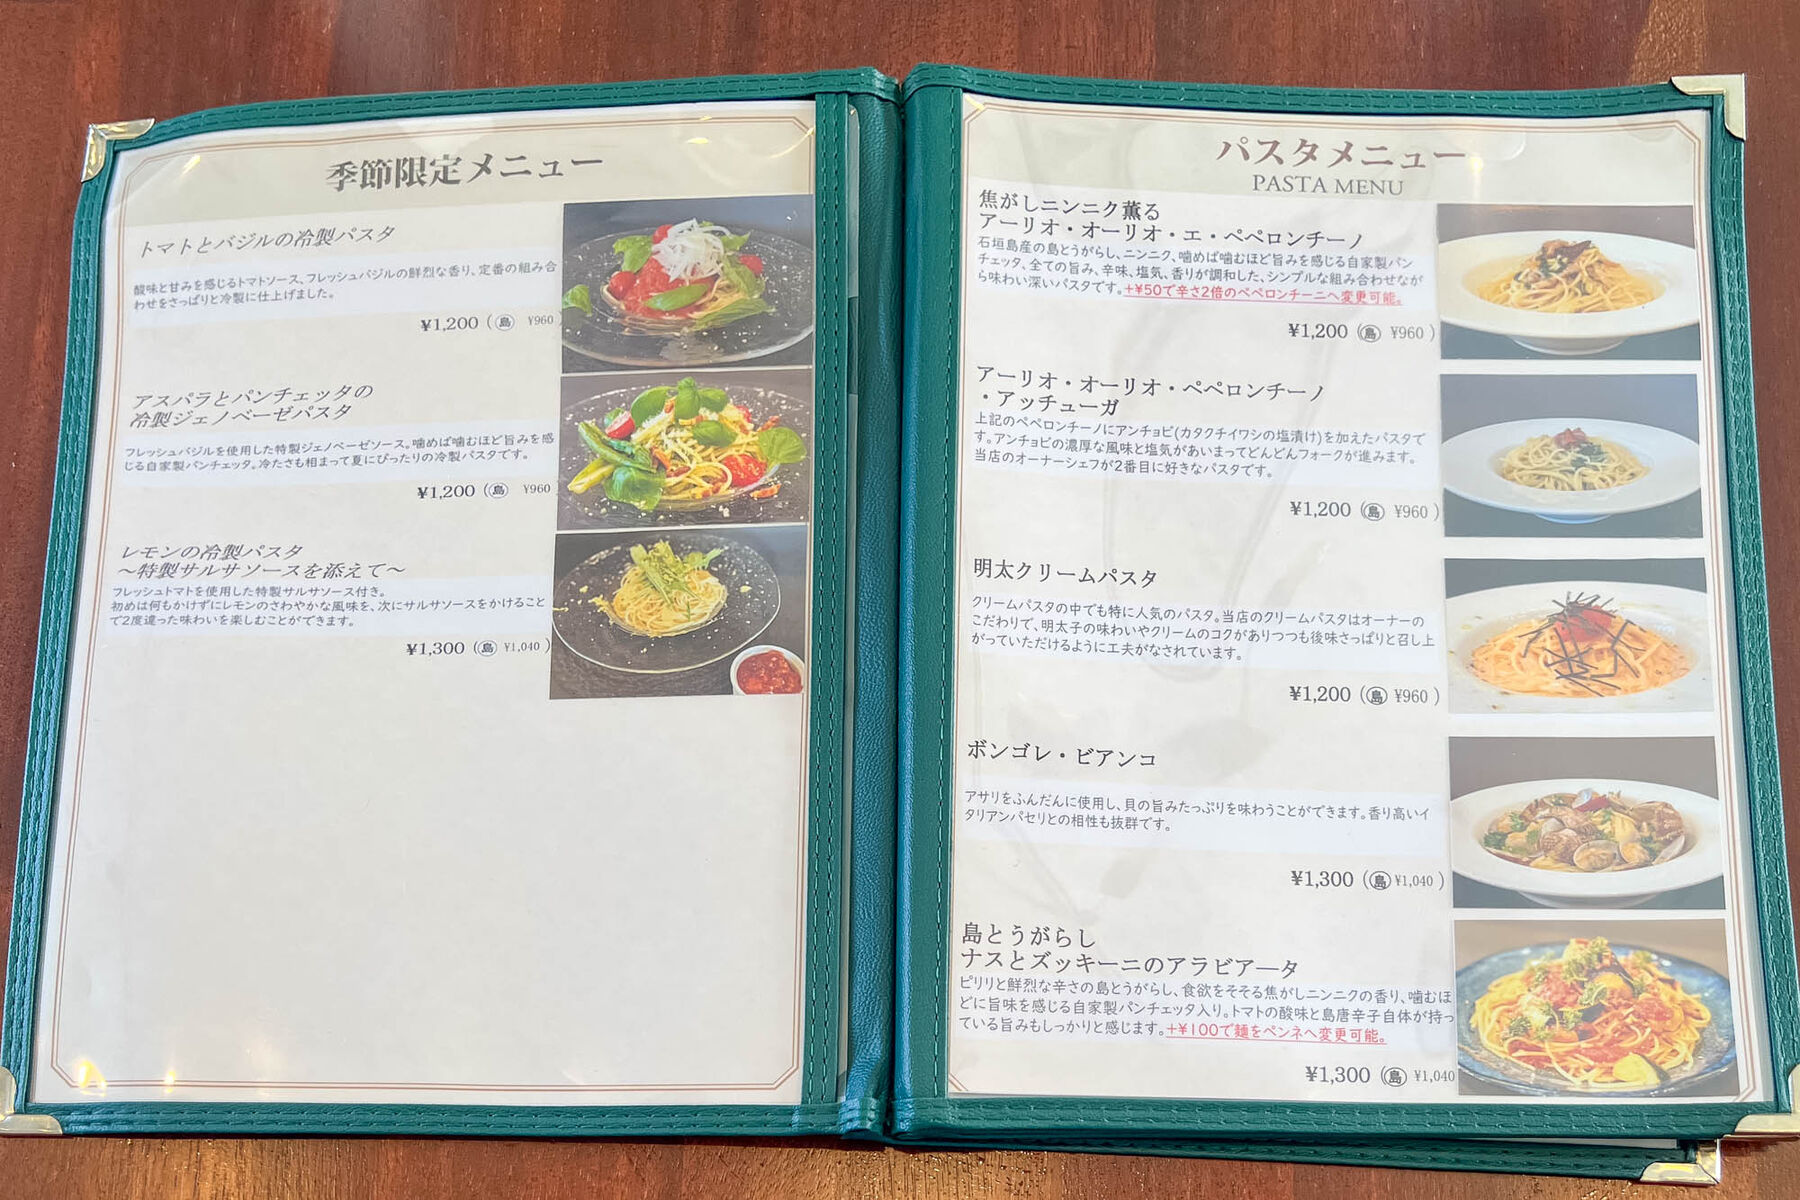 季節限定メニュー
トマトとバジルの冷製パスタ
酸味と甘みを感じるトマトソース、フレッシュバジルの鮮烈な香り、定番の組み合
わせをさっぱりと冷製に仕上げました。
¥1,200 (島 ¥960 )
アスパラとパンチェッタの
冷製ジェノベーゼパスタ
フレッシュバジルを使用した特製ジェノベーゼソース。噛めば噛むほど旨みを感
じる自家製パンチェッタ。冷たさも相まって夏にぴったりの冷製パスタです。
¥1,200 (島 ¥960
レモンの冷製パスタ
～特製サルサソースを添えて～
フレッシュトマトを使用した特製サルサソース付き。
初めは何もかけずにレモンのさわやかな風味を、次にサルサソースをかけること
で2度違った味わいを楽しむことができます。
¥1,300 (島 ¥1,040 )
パスタメニュー
PASTA MENU
焦がしニンニク薫る
アーリオ・オーリオ・エ・ペペロンチーノ
石垣島産の島とうがらし、ニンニク、噛めば噛むほど旨みを感じる自家製パン
チェッタ、全ての旨み、辛味、塩気、香りが調和した、シンプルな組み合わせなが
ら味わい深いパスタです。+¥50で辛さ2倍のペペロンチーニへ変更可能。
¥1,200 (島 ¥960 )
アーリオ・オーリオ・ペペロンチーノ
・アッチューガ
上記のペペロンチーノにアンチョビ(カタクチイワシの塩漬け)を加えたパスタで
す。アンチョビの濃厚な風味と塩気があいまってどんどんフォークが進みます。
当店のオーナーシェフが2番目に好きなパスタです。
¥1,200 (島 ¥960 )
明太クリームパスタ
クリームパスタの中でも特に人気のパスタ。当店のクリームパスタはオーナーの
こだわりで、明太子の味わいやクリームのコクがありつつも後味さっぱりと召し上
がっていただけるように工夫がなされています。
¥1,200 (島 ¥960 )
ボンゴレ・ビアンコ
アサリをふんだんに使用し、貝の旨みたっぷりを味わうことができます。香り高いイ
タリアンパセリとの相性も抜群です。
¥1,300 (島 ¥1,040 )
島とうがらし
ナスとズッキーニのアラビアータ
ピリリと鮮烈な辛さの島とうがらし、食欲をそそる焦がしニンニクの香り、噛むほ
どに旨味を感じる自家製パンチェッタ入り。トマトの酸味と島唐辛子自体が持っ
ている旨みもしっかりと感じます。+¥100で麺をペンネへ変更可能。
¥1,300 (島 ¥1,040